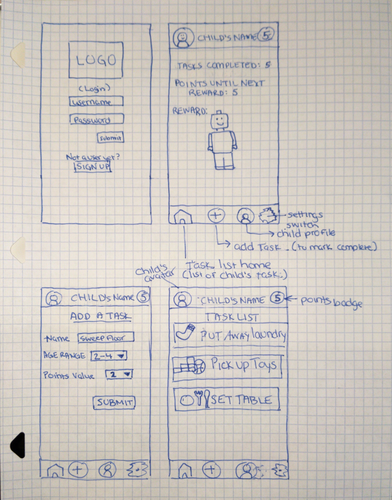 LOGO
(Login)
Username
Password
Submit
Not a user yet?
SIGN UP
CHILD'S NAME 5
TASKS COMPLETED: 5
POINTS UNTIL NEXT
REWARD: 5
REWARD:
settings
switch
child profile
add Task (to mark complete)
Task list home
(list of child's task)
CHILD'S Name 5
ADD A TASK
Name Sweep Floor
AGE RANGE 2-4
Points Value 2
SUBMIT
Child's
CHILD'S NAME 5
points badge
TASK LIST
PUT AWAY laundry
Pick up Toys
SET TABLE